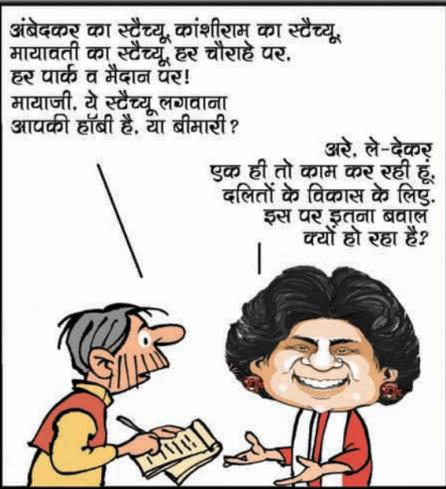 अंबेदकर का स्टैच्यू, कांशीराम का स्टैच्यू,
मायावती का स्टैच्यू, हर चौराहे पर,
हर पार्क व मैदान पर!
मायाजी, ये स्टैच्यू लगवाना
आपकी हॉबी है, या बीमारी?
अरे, ले-देकर
एक ही तो काम कर रही हूं,
दलितों के विकास के लिए,
इस पर इतना बवाल
क्यों हो रहा है?